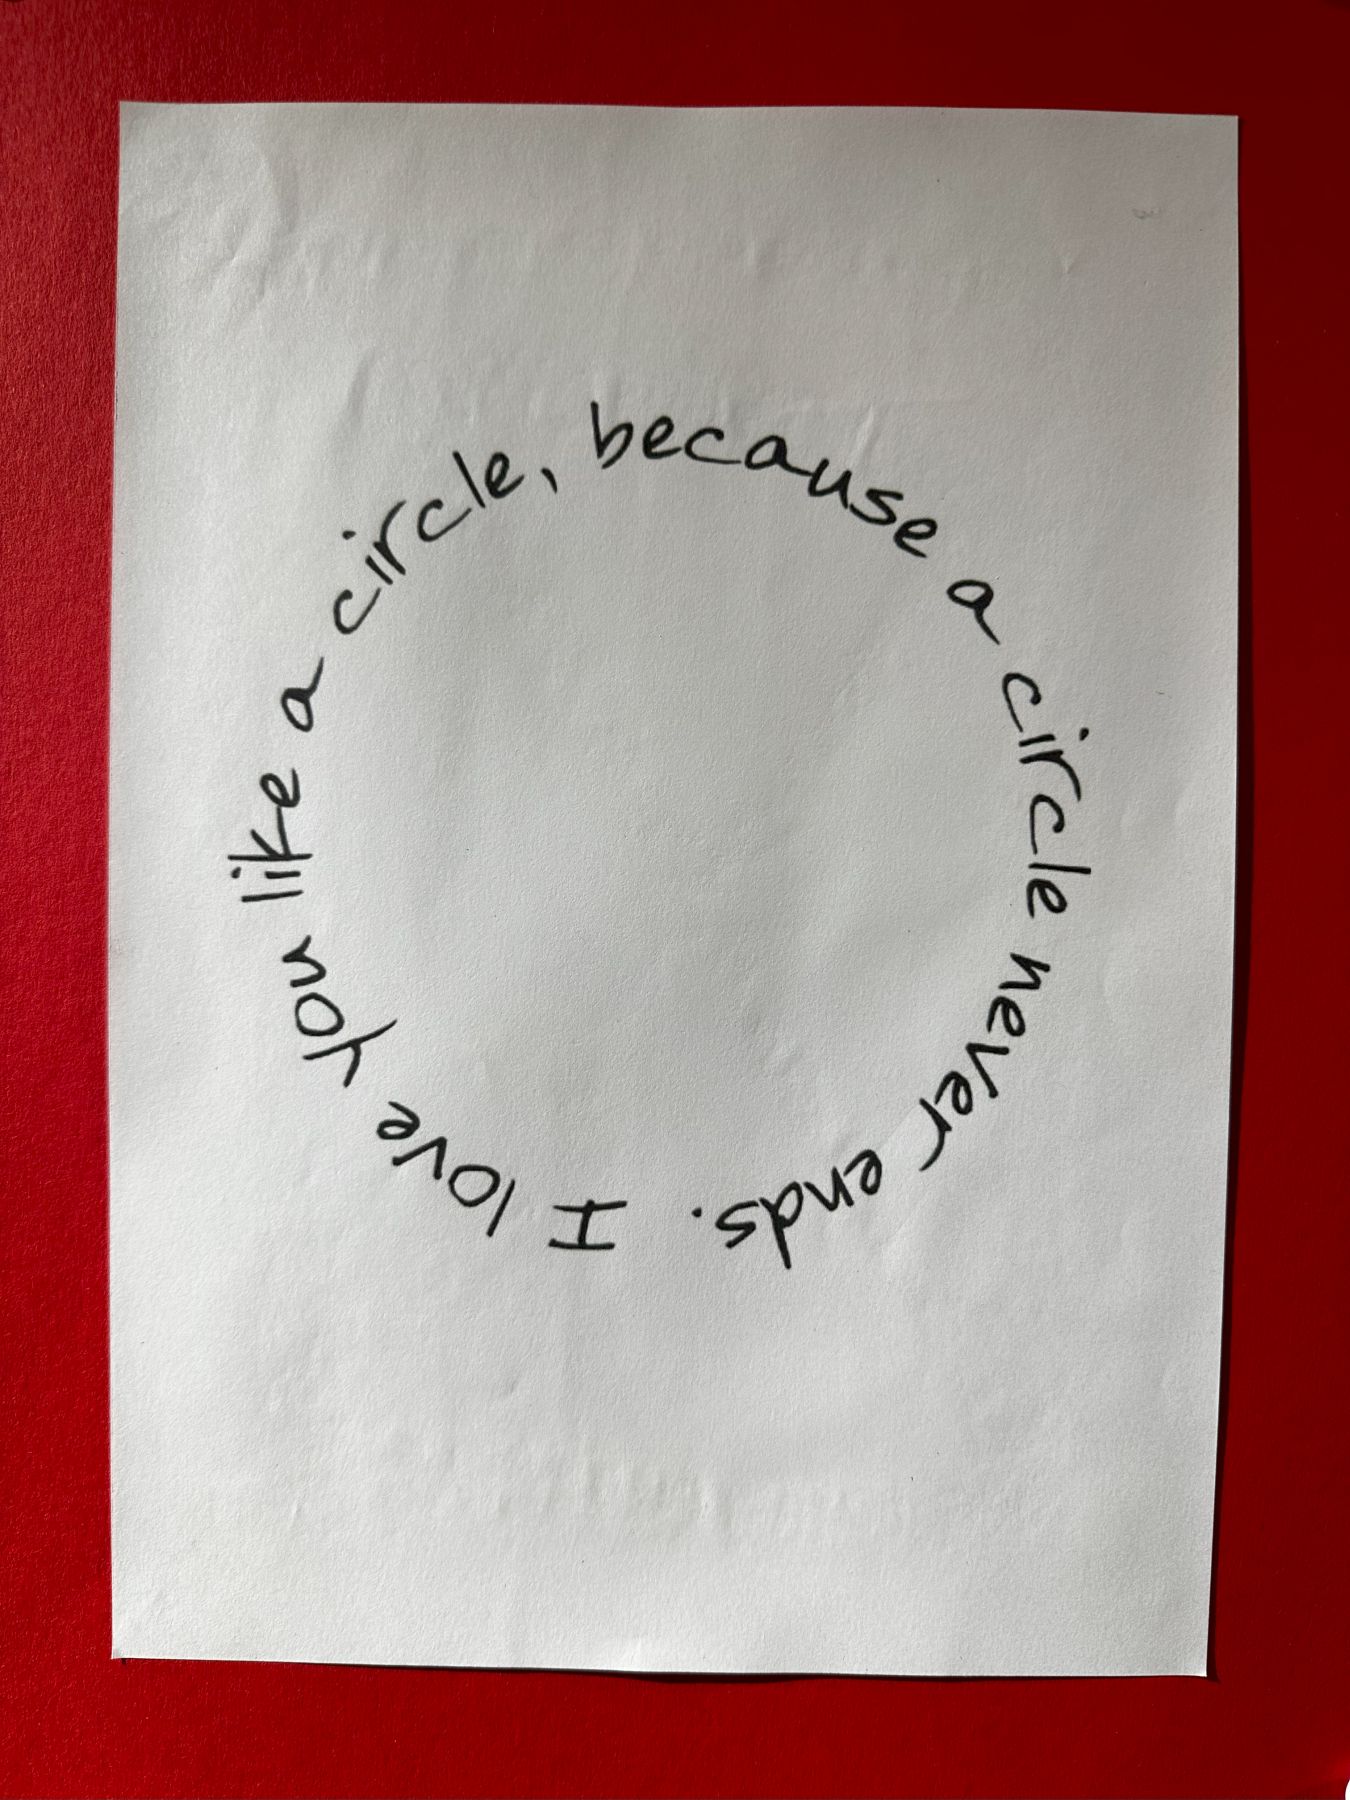 I love you like a circle, because a circle never ends.